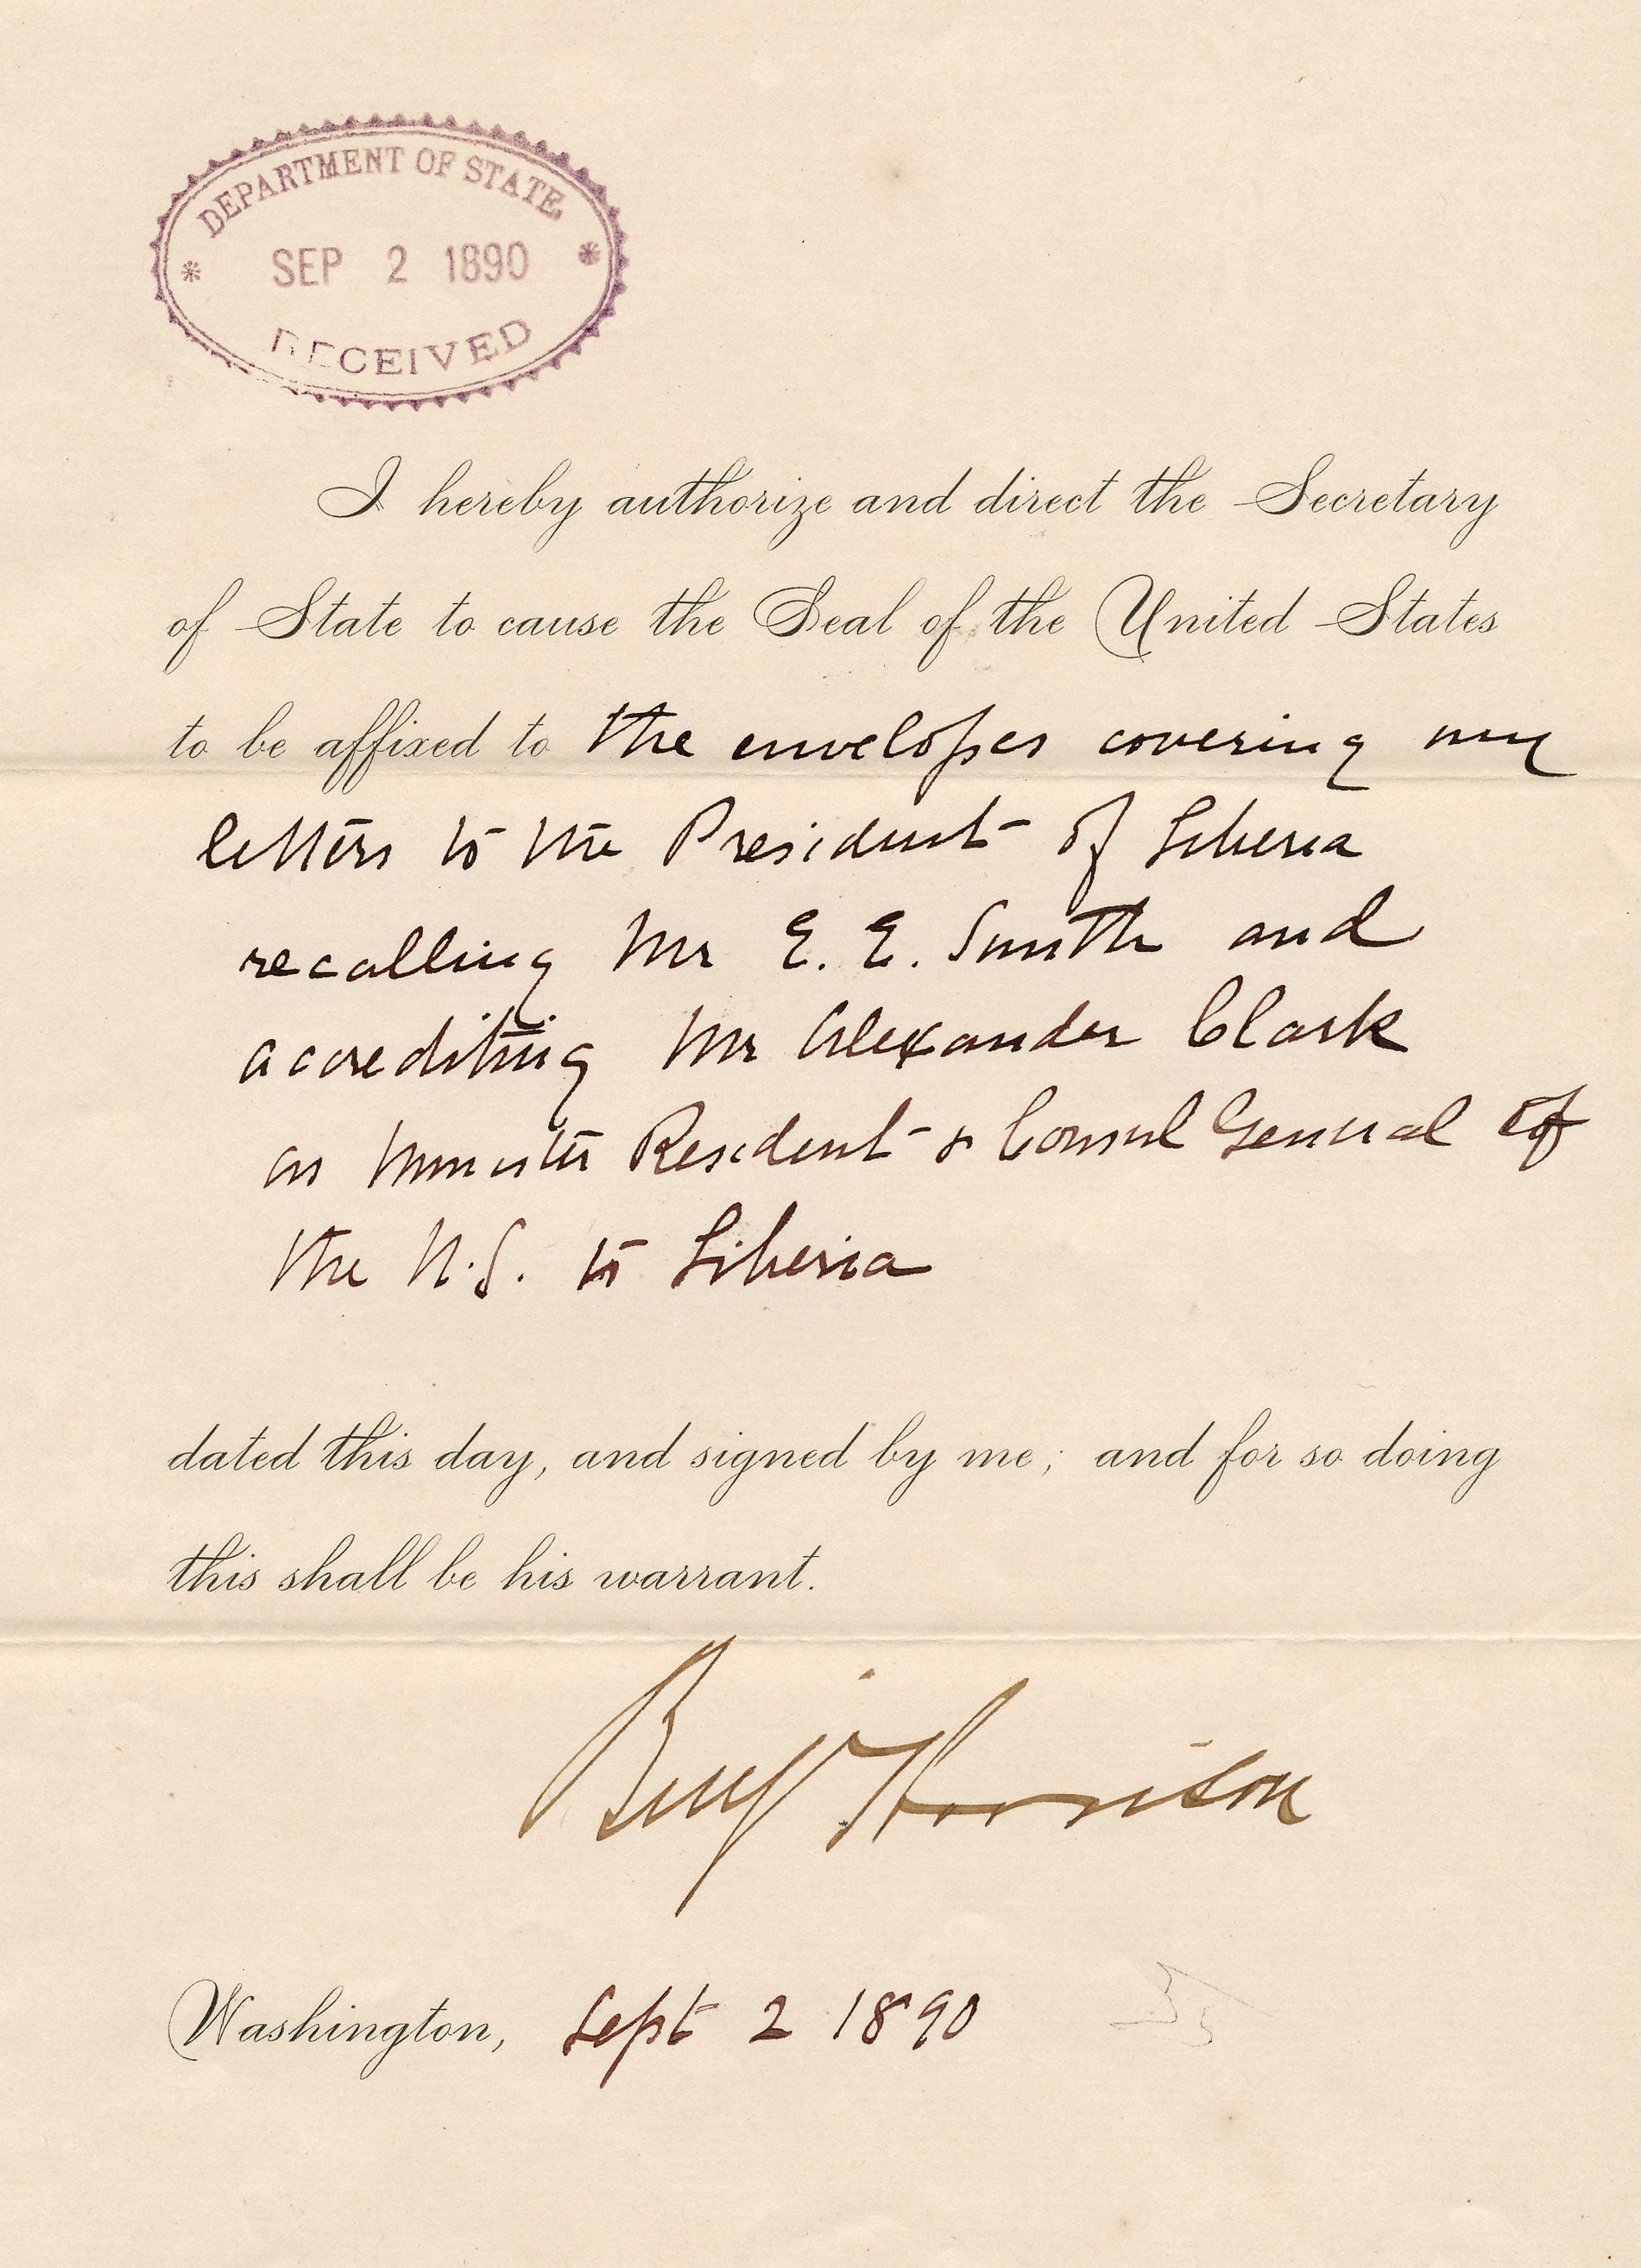 DEPARTMENT OF STATE
* SEP 2 1890 *
RECEIVED
I hereby authorize and direct the Secretary
of State to cause the Seal of the United States
to be affixed to the envelopes covering my
letters to the President of Liberia
recalling Mr E. E. Smith and
accrediting Mr Alexander Clark
as Minister Resident & Consul General of
the U.S. to Liberia
dated this day, and signed by me; and for so doing
this shall be his warrant.
Benj Harrison
Washington, Sept 2 1890